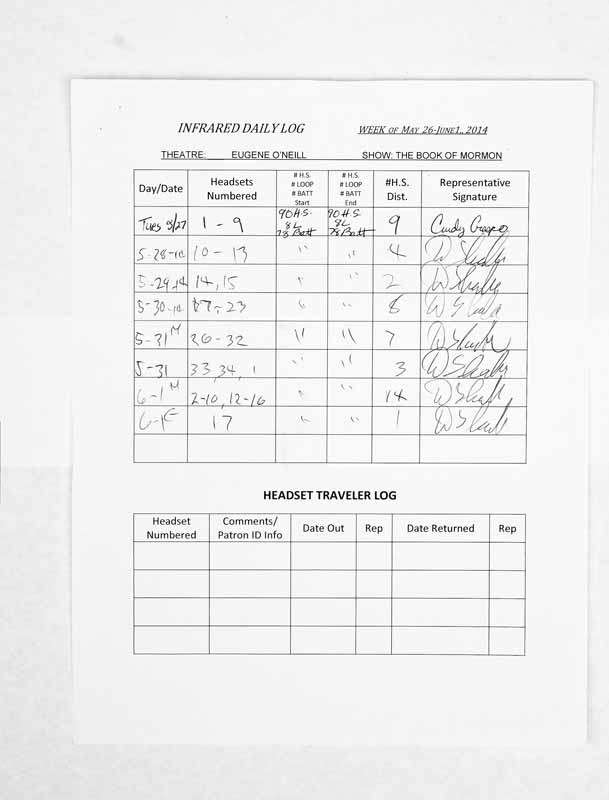 INFRARED DAILY LOG WEEK OF MAY 26-JUNE1, 2014
THEATRE: EUGENE O'NEILL SHOW: THE BOOK OF MORMON
Day/Date Headsets Numbered # H.S. # LOOP # BATT Start # H.S. # LOOP # BATT End #H.S. Dist. Representative Signature
Tues 5/27 1 - 9 90 H.S. 8L 78 Batt 90 H.S. 8L 78 Batt 9 Cindy
5-28-14 10 - 13 " " 4
5-29-14 14, 15 " " 2
5-30-14 17-23 " " 8
5-31 M 26-32 " " 7
5-31 33, 34, 1 " " 3
6-1 M 2-10, 12-16 " " 14
6-1 E 17 " " 1
HEADSET TRAVELER LOG
Headset Numbered Comments/ Patron ID Info Date Out Rep Date Returned Rep